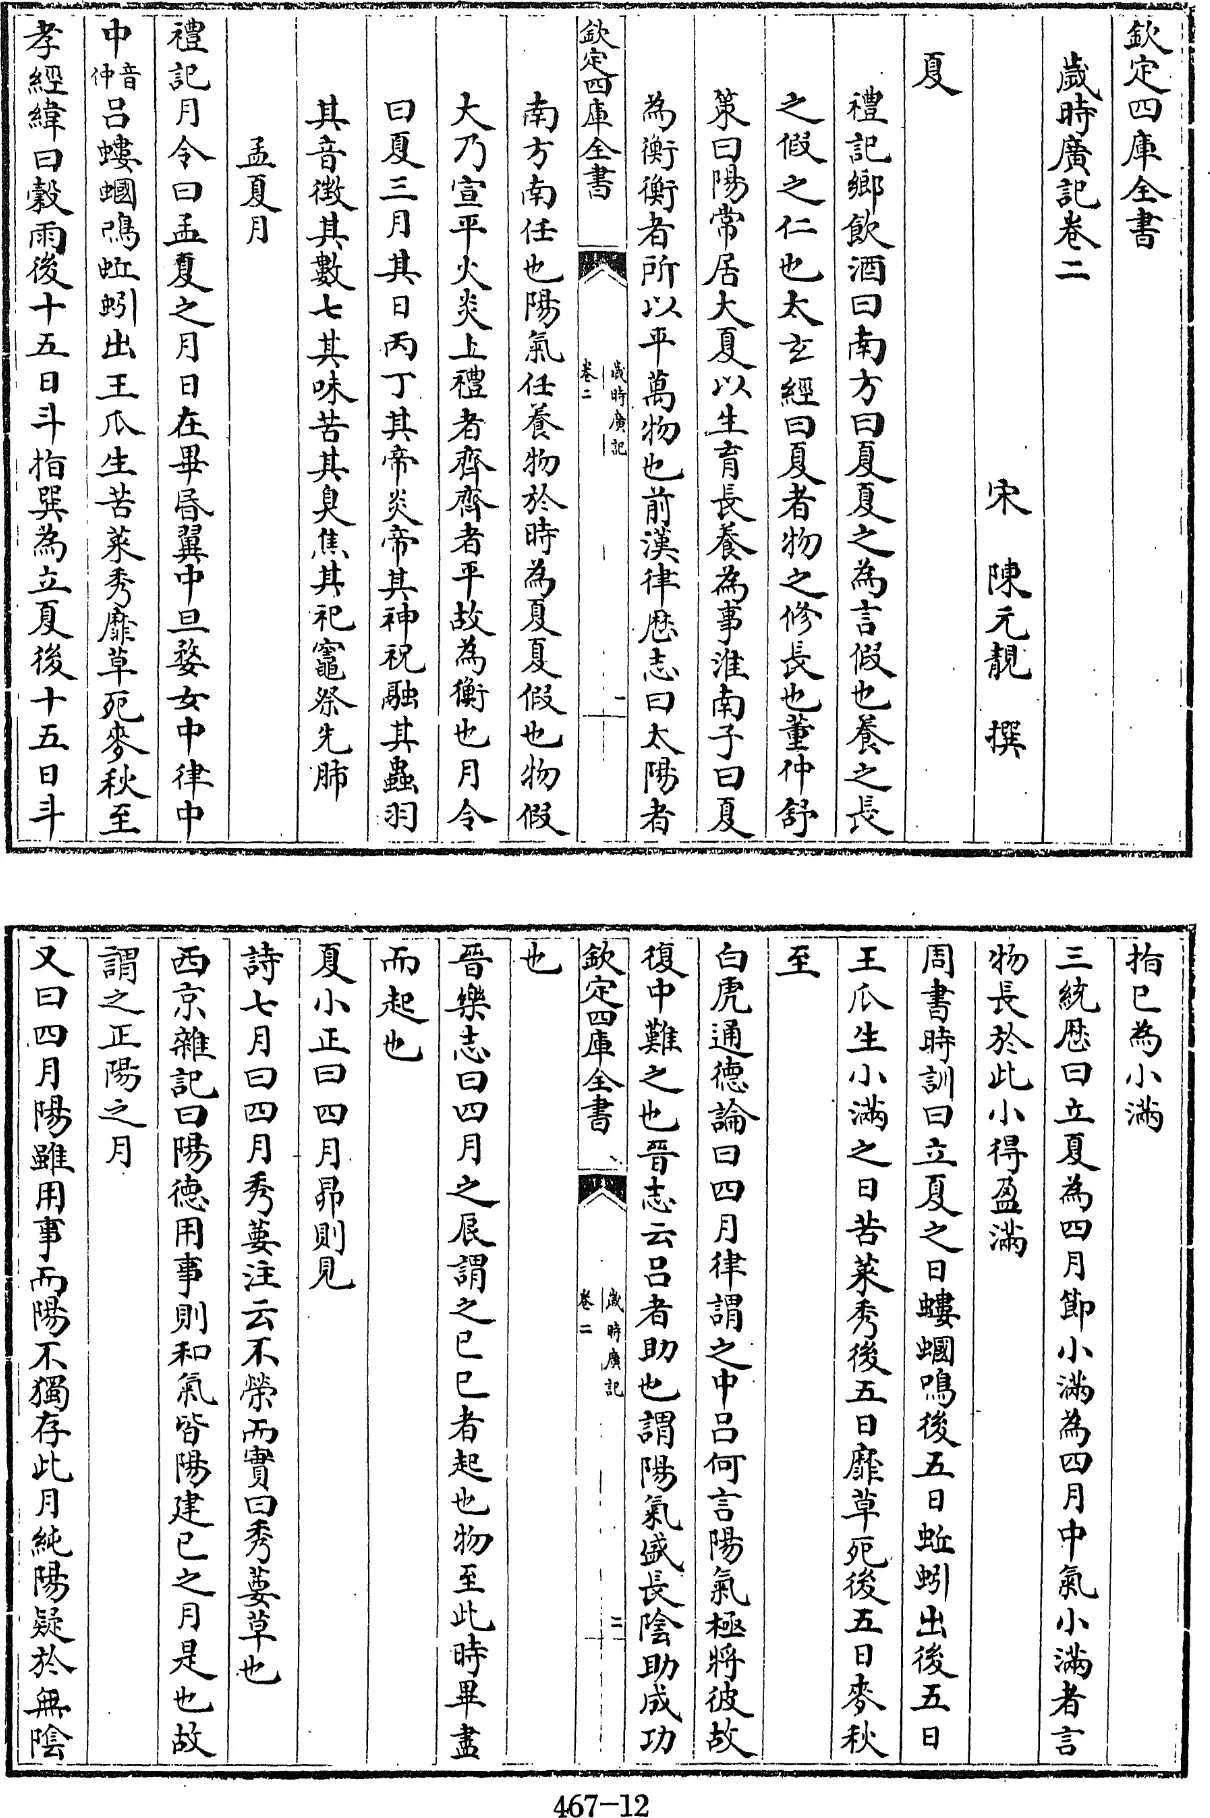 欽定四庫全書
歲時廣記卷二
宋 陳元靚 撰
夏
禮記鄉飲酒曰南方曰夏夏之為言假也養之長
之假之仁也太玄經曰夏者物之修長也董仲舒
策曰陽常居大夏以生育長養為事淮南子曰夏
為衡衡者所以平萬物也前漢律厯志曰太陽者
欽定四庫全書
歲時廣記
卷二
一
南方南任也陽氣任養物於時為夏夏假也物假
大乃宣平火炎上禮者齊齊者平故為衡也月令
曰夏三月其日丙丁其帝炎帝其神祝融其蟲羽
其音徵其數七其味苦其臭焦其祀竈祭先肺
孟夏月
禮記月令曰孟夏之月日在畢昏翼中旦婺女中律中
中音仲呂螻蟈鳴蚯蚓出王瓜生苦菜秀靡草死麥秋至
孝經緯曰穀雨後十五日斗指巽為立夏後十五日斗
指巳為小滿
三統厯曰立夏為四月節小滿為四月中氣小滿者言
物長於此小得盈滿
周書時訓曰立夏之日螻蟈鳴後五日蚯蚓出後五日
王瓜生小滿之日苦菜秀後五日靡草死後五日麥秋
至
白虎通德論曰四月律謂之中呂何言陽氣極將彼故
復中難之也晉志云呂者助也謂陽氣盛長陰助成功
欽定四庫全書
歲時廣記
卷二
二
也
晉樂志曰四月之辰謂之巳巳者起也物至此時畢盡
而起也
夏小正曰四月昴則見
詩七月曰四月秀葽注云不榮而實曰秀葽草也
西京雜記曰陽德用事則和氣皆陽建巳之月是也故
謂之正陽之月
又曰四月陽雖用事而陽不獨存此月純陽疑於無陰
467-12